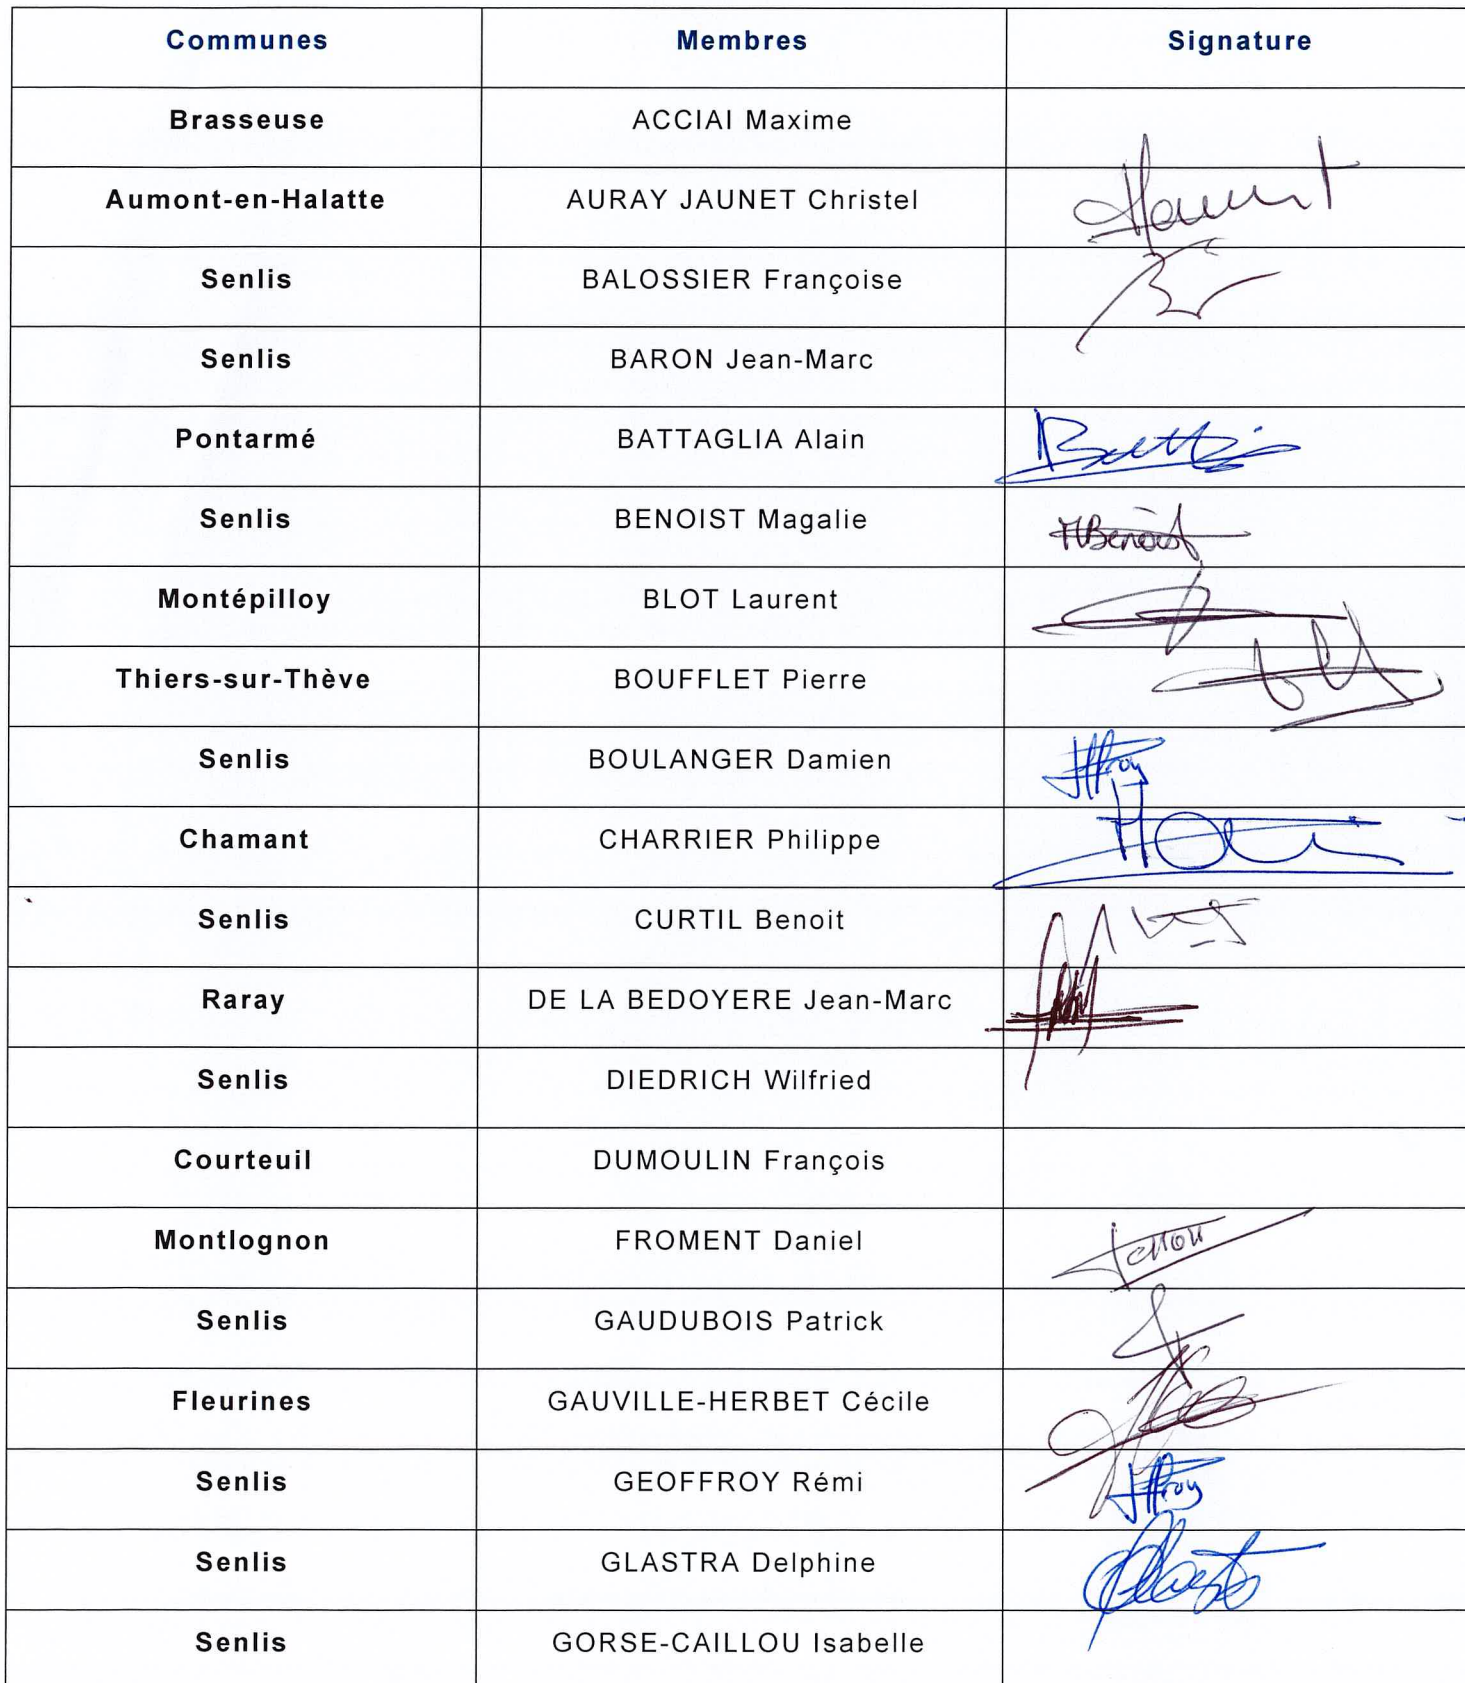 Communes Membres Signature
Brasseuse ACCIAI Maxime
Aumont-en-Halatte AURAY JAUNET Christel
Senlis BALOSSIER Françoise
Senlis BARON Jean-Marc
Pontarmé BATTAGLIA Alain
Senlis BENOIST Magalie MBenoist
Montépilloy BLOT Laurent
Thiers-sur-Thève BOUFFLET Pierre
Senlis BOULANGER Damien
Chamant CHARRIER Philippe
Senlis CURTIL Benoit
Raray DE LA BEDOYERE Jean-Marc
Senlis DIEDRICH Wilfried
Courteuil DUMOULIN François
Montlognon FROMENT Daniel
Senlis GAUDUBOIS Patrick
Fleurines GAUVILLE-HERBET Cécile
Senlis GEOFFROY Rémi
Senlis GLASTRA Delphine
Senlis GORSE-CAILLOU Isabelle